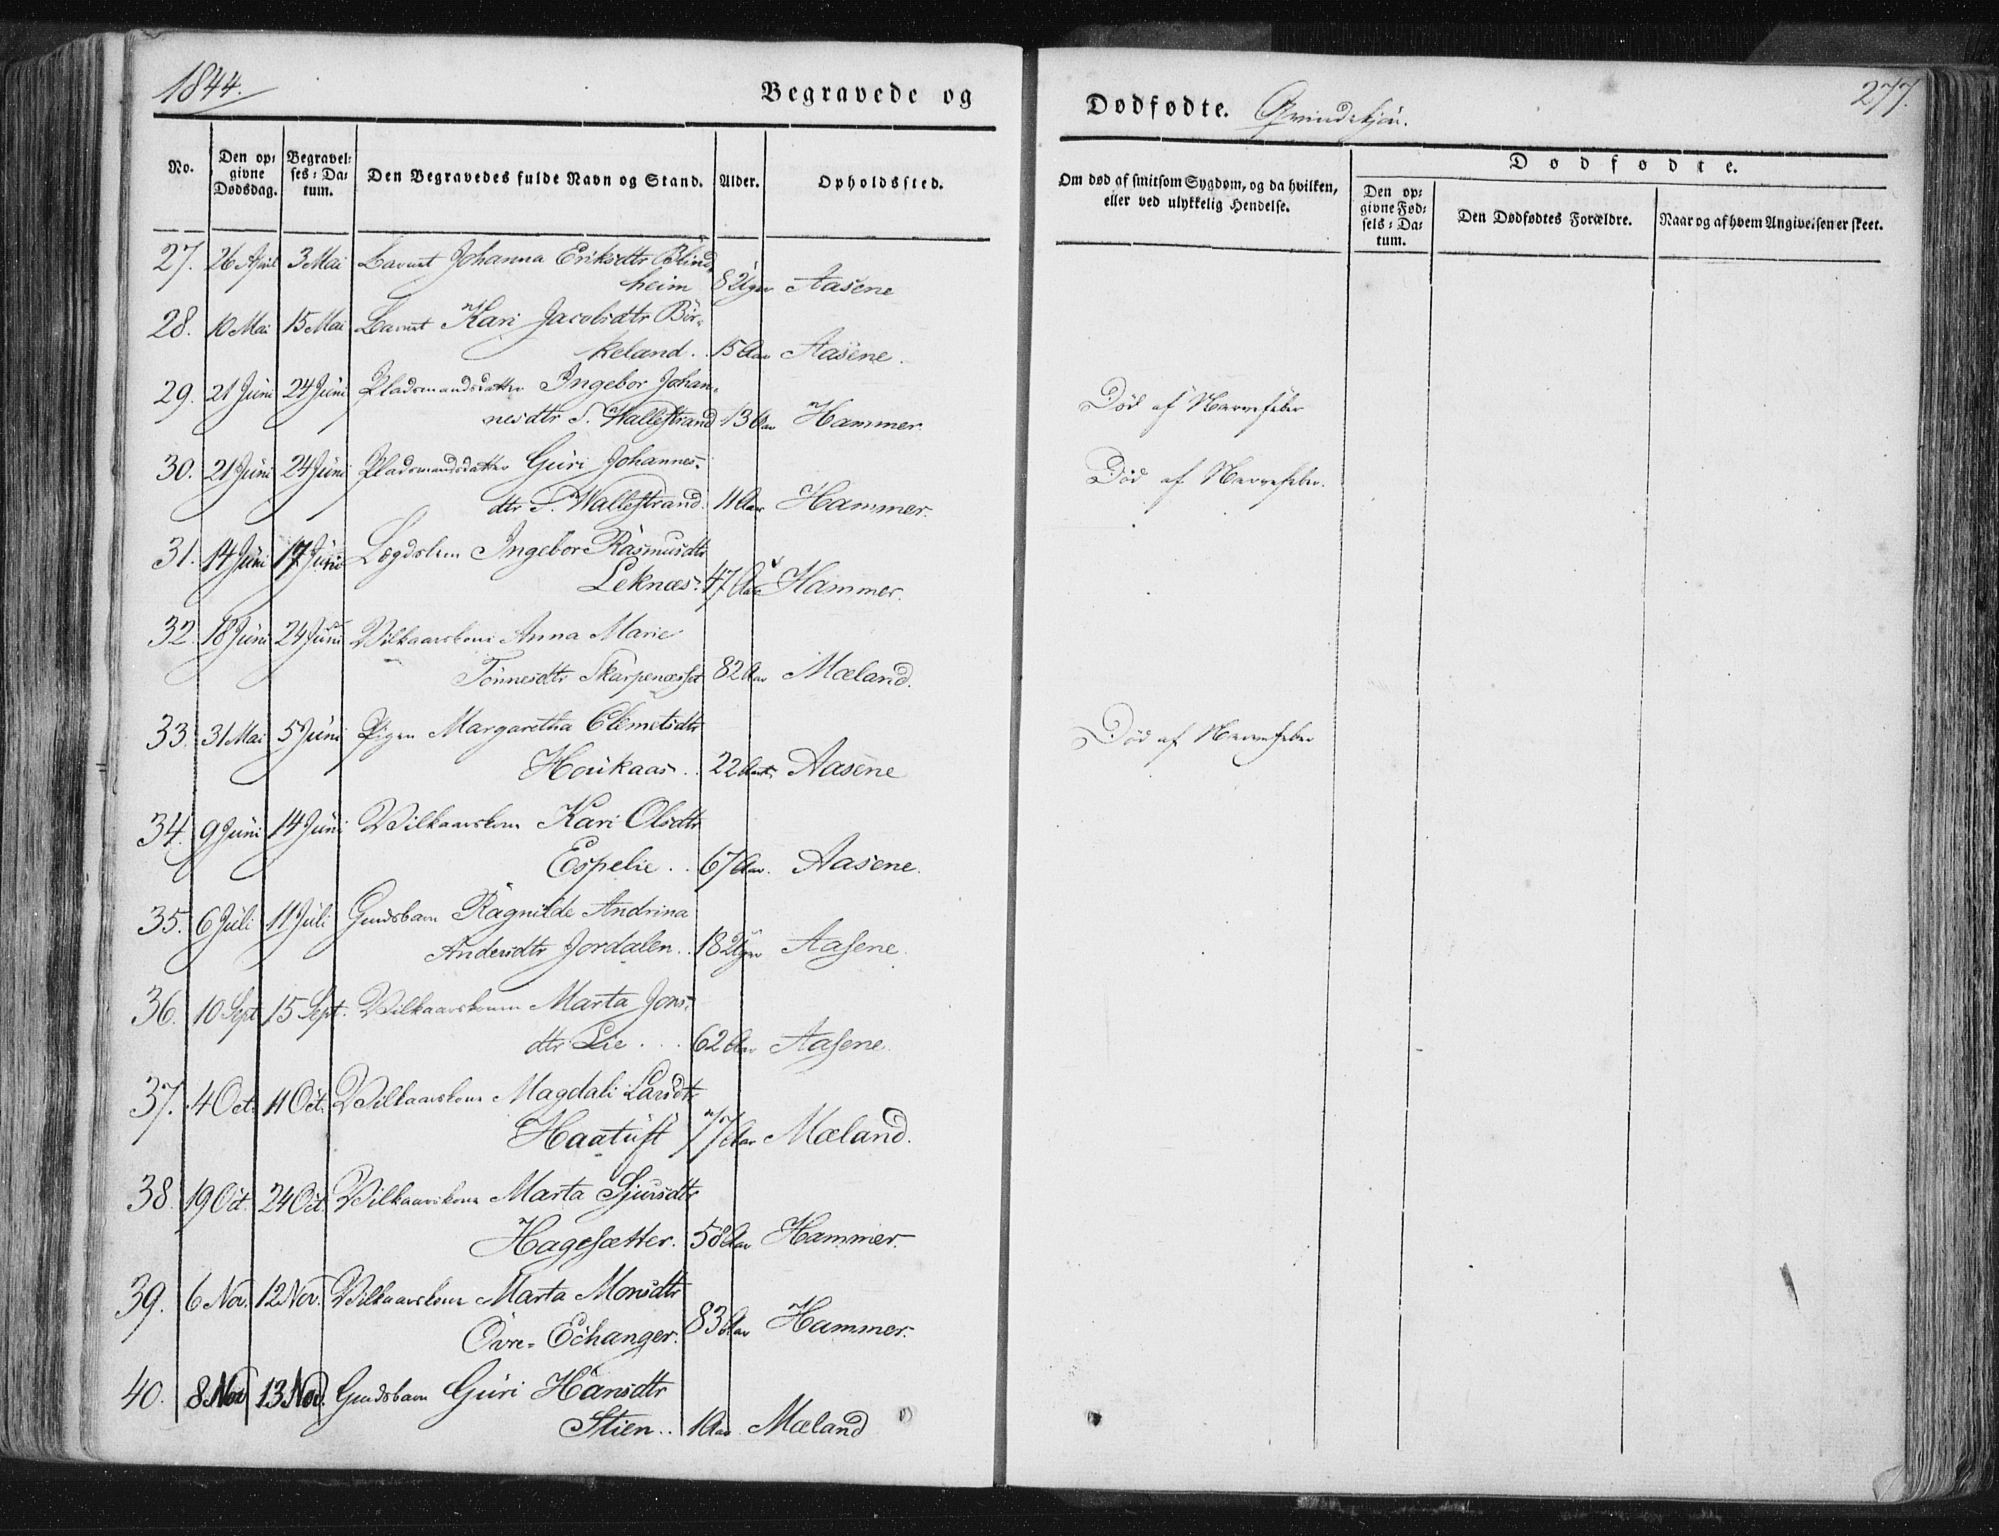 1844.
Begravede og
Dødfødte. Qvindekjøn.
277.
No.
Den op-
givne
Dødsdag.
Begravel-
ses-Da-
tum.
Den Begravedes fulde Navn og Stand.
Alder.
Opholdssted.
Om død af smitsom Sygdom, og da hvilken,
eller ved ulykkelig Hendelse.
Dødfødte.
Den op-
givne Fød-
sels-Da-
tum.
Den Dødfødtes Forældre.
Naar og af hvem Angivelsen er skeet.
27. 26 April 3 Mai Johanna Eriksdtr Blind
heim 8 Uger Aasene
28. 10 Mai 15 Mai Kari Jacobsdtr Bör-
keland. 15 Aar Aasene.
29. 21 Juni 24 Juni Pladsmandsdatter Ingebor Johan-
nesdtr S. Wallestrand 13 Aar Hammer. Död af Nervefeber
30. 21 Juni 24 Juni Pladsmandsdatter Guri Johannes-
dtr S. Wallestrand. 11 Aar Hammer. Död af Nervefeber.
31. 14 Juni 17 Juni Lægdslem Ingebor Rasmusdtr
Leknæs. 47 Aar Hammer.
32. 18 Juni 24 Juni Vilkaarskone Anna Marie
Tönnesdtr Skarpenæsset 82 Aar Mæland.
33. 31 Mai 5 Juni Pigen Margaretha Clemetsdtr
Houkaas.. 22 Aar Aasene Död af Nervefeber
34. 9 Juni 14 Juni Vilkaarskone Kari Olsdtr
Espelie.. 67 Aar. Aasene.
35. 6 Juli 11 Juli Gaardsbarn Ragnilde Andrina
Andersdtr Jordalen.. 18 Uger Aasene.
36. 10 Sept 15 Sept. Vilkaarskonen Marta Jons-
dtr Lie... 62 Aar Aasene.
37. 4 Oct. 11 Oct. Vilkaarskone Magdali Larsdtr
Haatuft 77 Aar Mæland.
38. 19 Oct. 24 Oct. Vilkaarskone Marta Sjursdtr
Hagesætter. 58 Aar Hammer.
39. 6 Nov. 12 Nov. Vilkaarskone Marta Monsdtr
Övre-Echanger. 83 Aar Hammer.
40. 8 Nov 13 Nov. Gaardsbarn Guri Hansdtr
Stien.. 1 Aar. Mæland